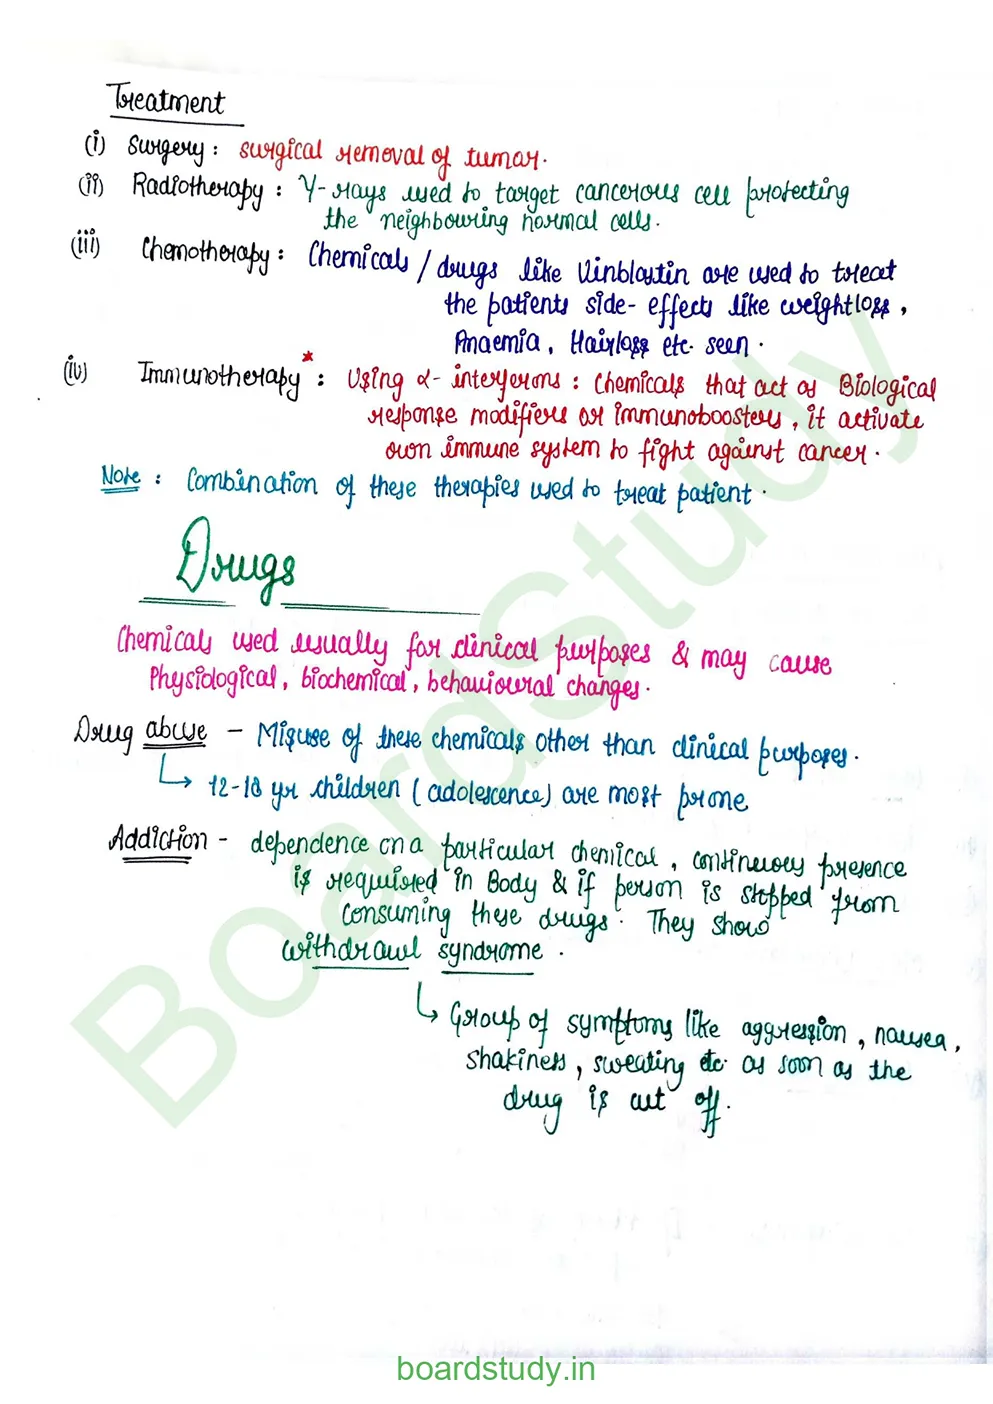 Treatment
(i) Surgery : surgical removal of tumar.
(ii) Radiotherapy : γ-rays used to target cancerous cell protecting
the neighbouring normal cells.
(iii) Chemotherapy : Chemicals / drugs like Vinblastin are used to treat
the patients side-effects like weightloss,
Anaemia, Hairloss etc. seen.
(iv) Immunotherapy* : Using α-interferons : Chemicals that act as Biological
response modifiers or immunoboosters, it activate
own immune system to fight against cancer.
Note : Combination of these therapies used to treat patient.
Drugs
Chemicals used usually for clinical purposes & may cause
Physiological, biochemical, behavioural changes.
Drug abuse – Misuse of these chemicals other than clinical purposes.
↳ 12-18 yr children (adolescence) are most prone
Addiction - dependence on a particular chemical, continuous presence
is required in Body & if person is stopped from
consuming these drugs. They show
withdrawl syndrome.
↳ Group of symptoms like aggression, nausea,
shakiness, sweating etc. as soon as the
drug is cut off.
BoardStudy
boardstudy.in